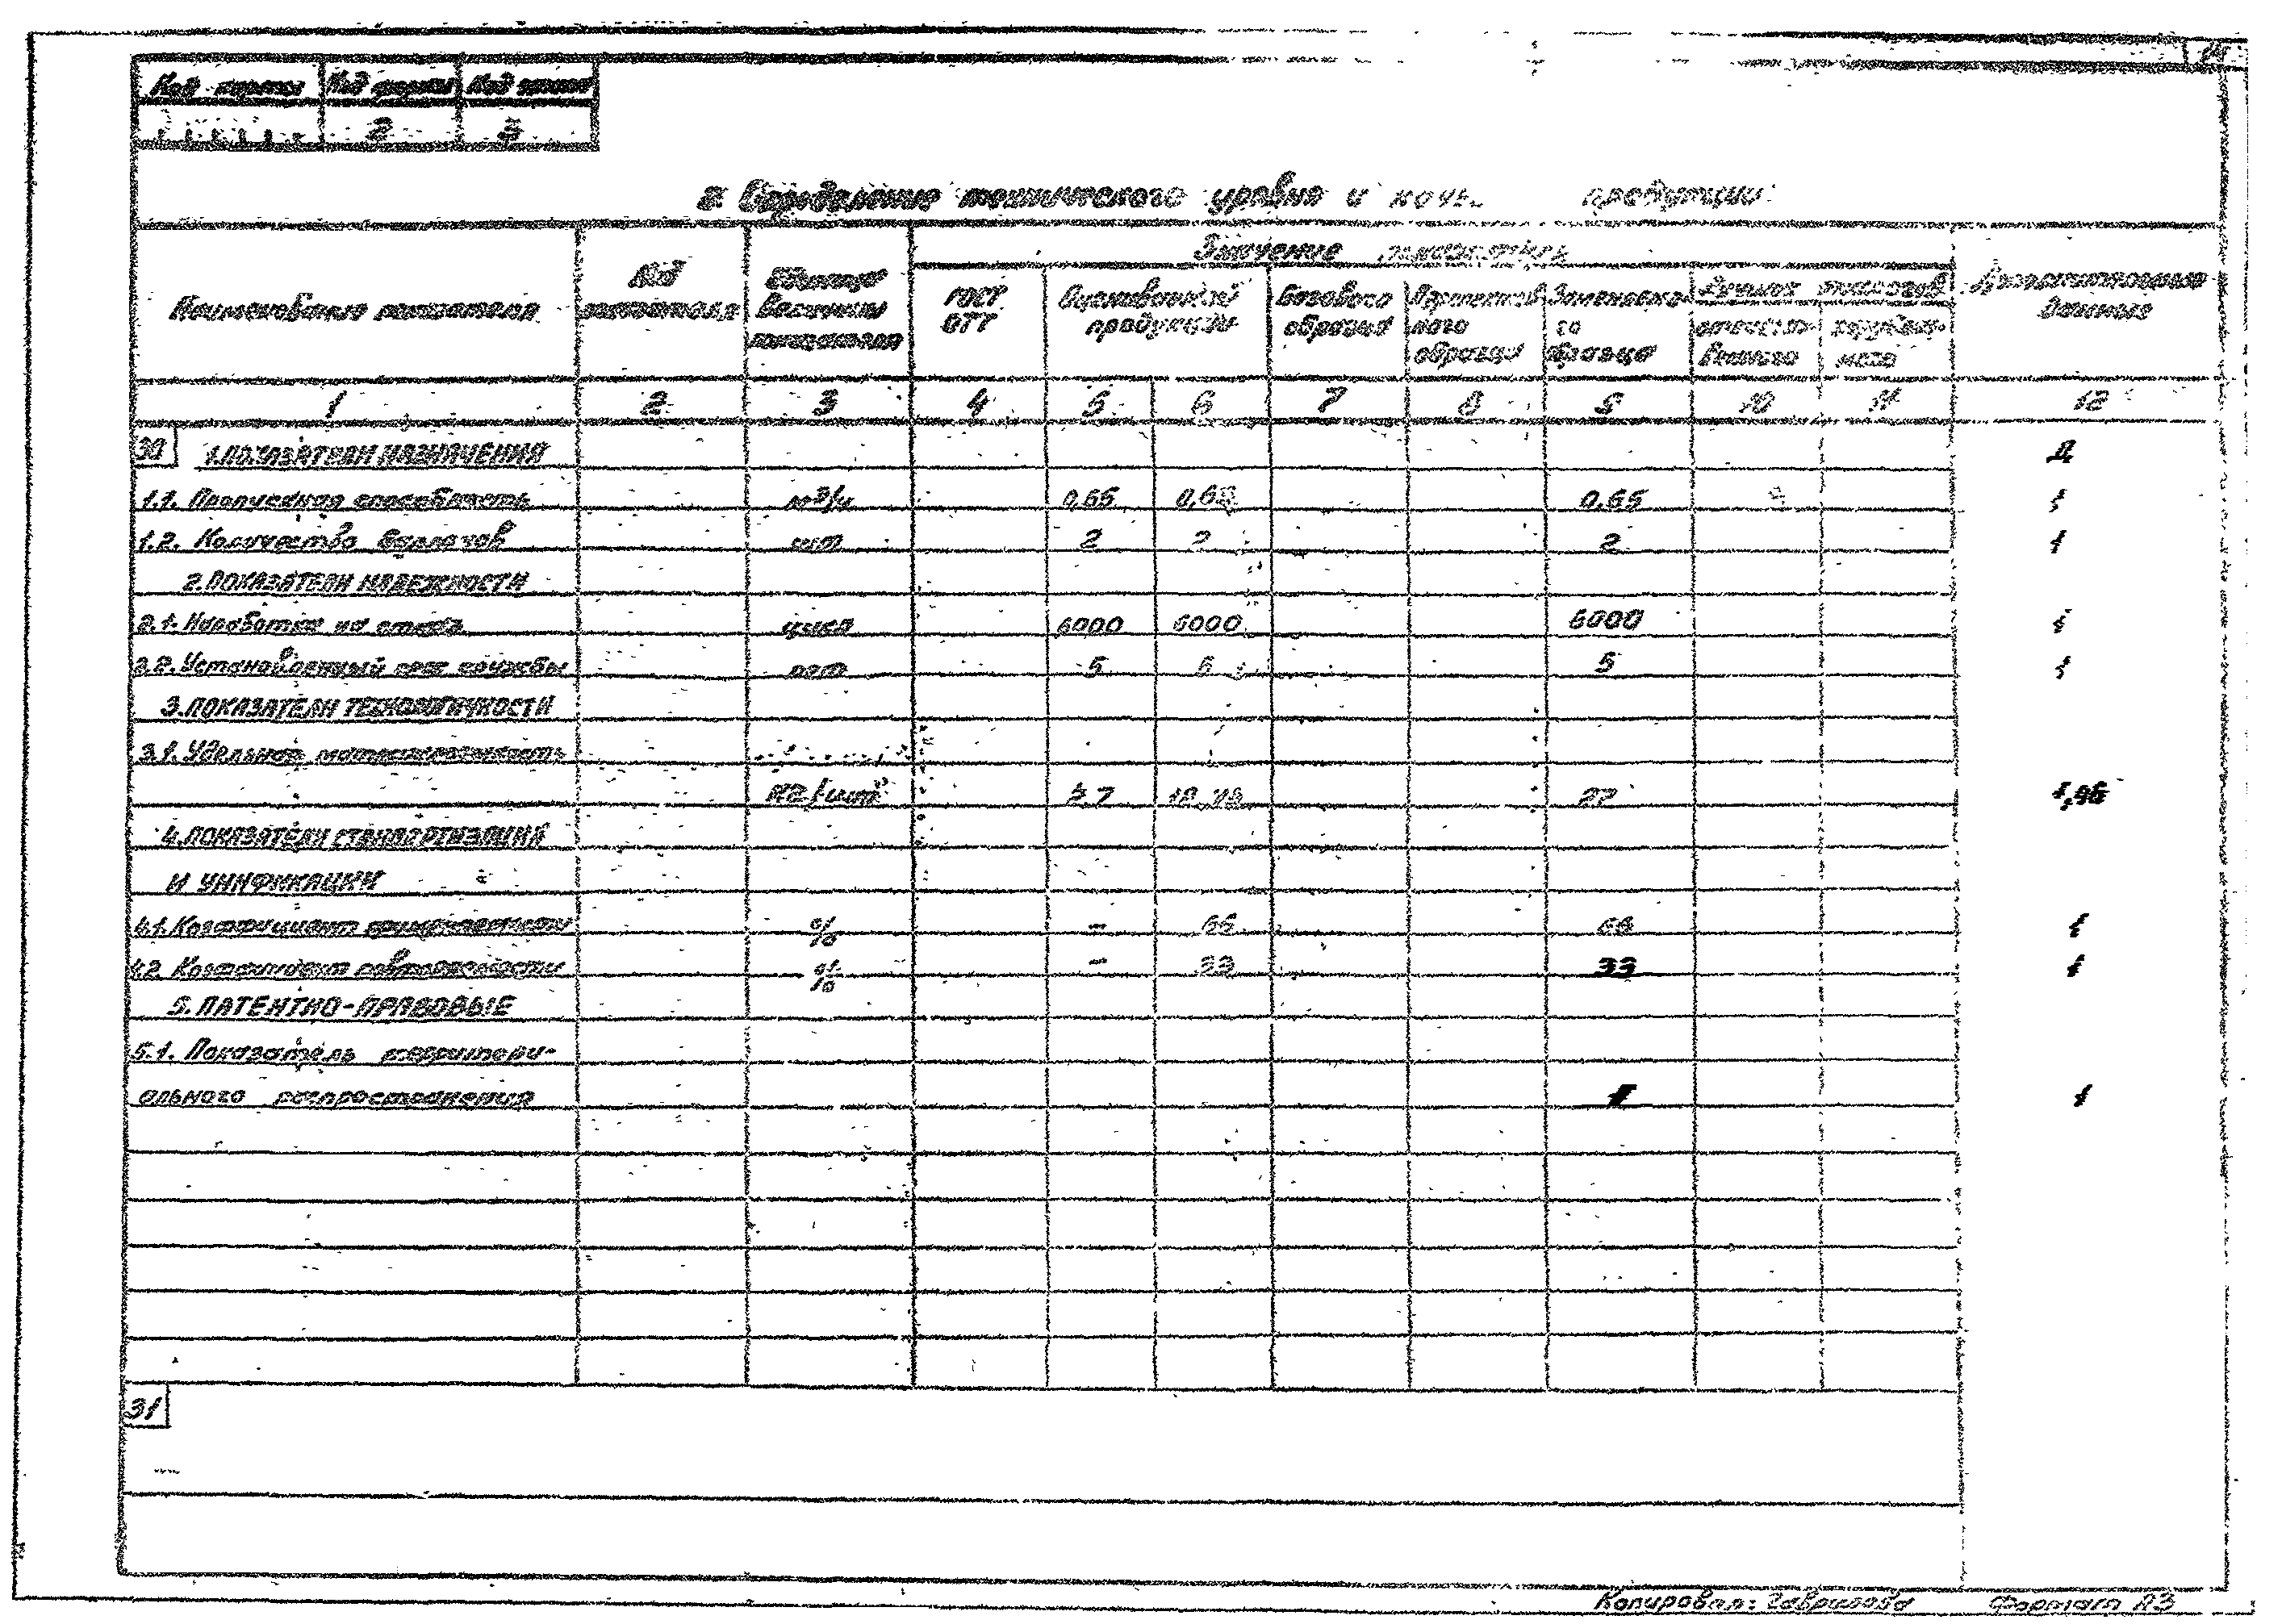 Код карты Код формы Код записи
2 3
2. Определение технического уровня и качес продукции
Наименование показателя
Код
показателя
Единица
величины
показателя
Значение показателя
ГОСТ
ОТТ
Оцениваемой
продукции
Базового
образца
Перспектив
ного
образца
Заменяемо
го
образца
Лучших аналогов
отечест-
венного
зарубеж-
ного
Дополнительные
данные
1 2 3 4 5 6 7 8 9 10 11 12
30 1. ПОКАЗАТЕЛИ НАЗНАЧЕНИЯ Д
1.1. Пропускная способность м³/ч 0,65 0,65 0,65
1.2. Количество баллонов шт 2 2 2
2. ПОКАЗАТЕЛИ НАДЕЖНОСТИ
2.1. Наработка на отказ цикл 6000 6000 6000
2.2. Установленный срок службы лет 5 5 5
3. ПОКАЗАТЕЛИ ТЕХНОЛОГИЧНОСТИ
3.1. Удельная материалоемкость
кг/шт 27
4. ПОКАЗАТЕЛИ СТАНДАРТИЗАЦИИ
И УНИФИКАЦИИ
4.1. Коэффициент применяемости % - 66 66
4.2. Коэффициент повторяемости % - 33 33
5. ПАТЕНТНО-ПРАВОВЫЕ
5.1. Показатель территори-
ального распространения
31
Копировал: Гаврилова Формат А3